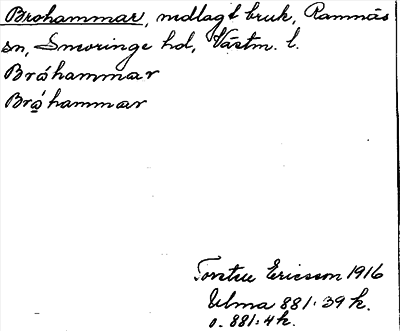 Brohammar, nedlagt bruk, Ramnäs
sn, Snevringe hd, Västm. l.
Bråhammar
Brǻhammar
Torsten Ericsson 1916
Ulma 881:39 k.
o. 881:4 k.